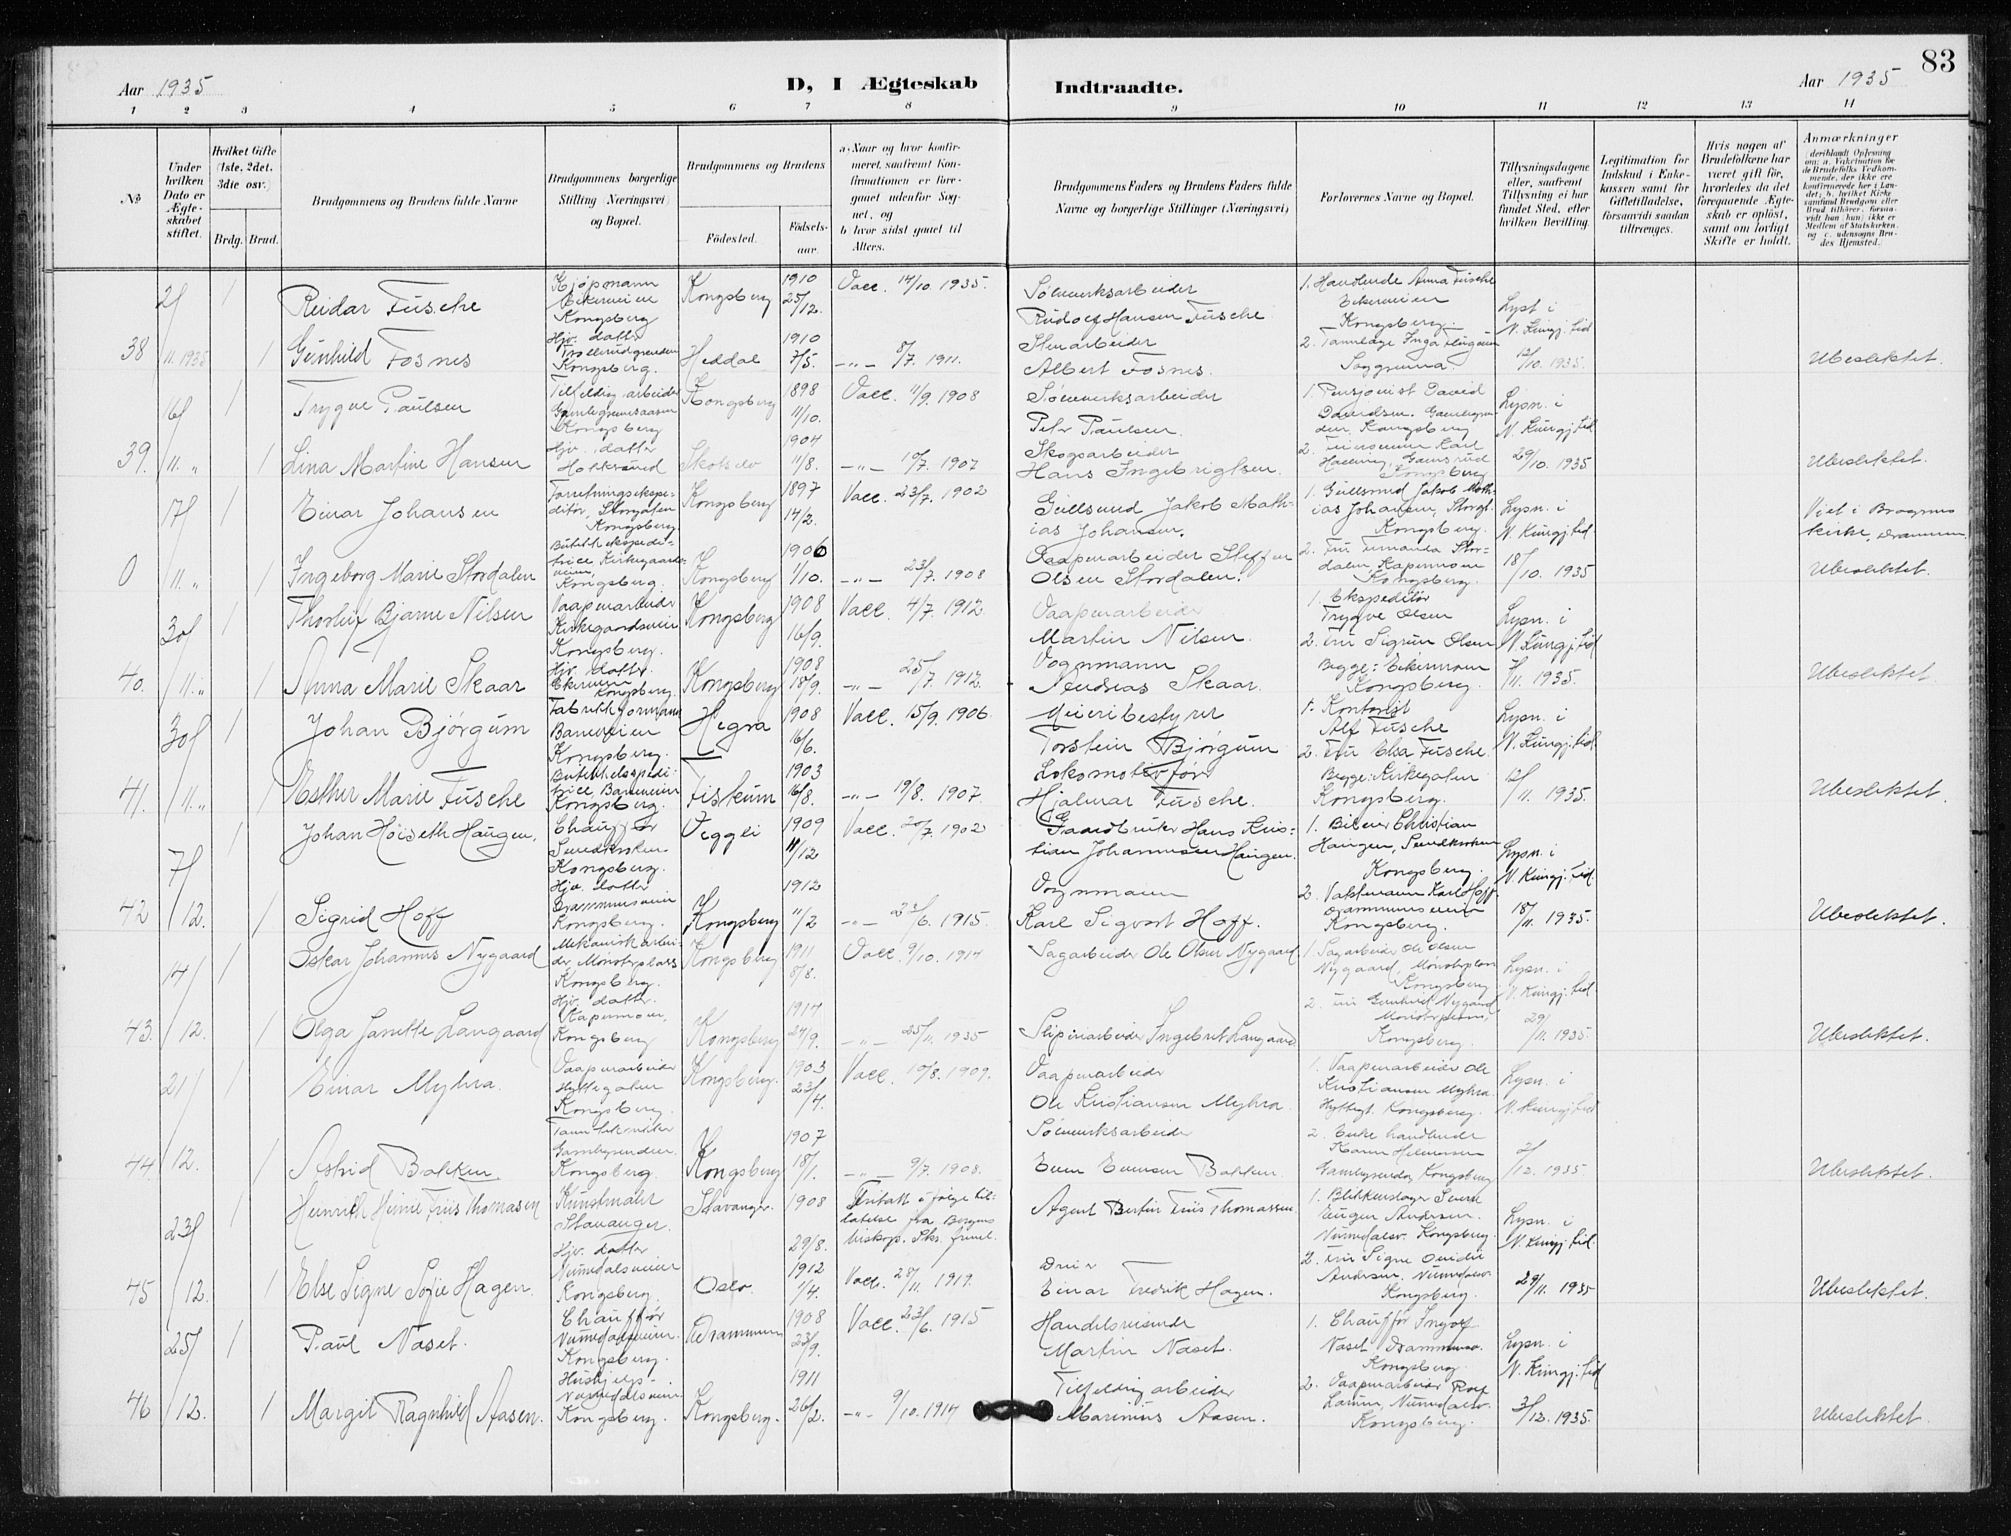 83
Aar 1935
D, I Ægteskab Indtraadte.
Aar 1935
1 2 3 4 5 6 7 8 9 10 11 12 13 14
No
Under hvilken Dato er Ægteskabet stiftet.
Hvilket Gifte (1ste, 2det, 3die osv.)
Brdg. Brud.
Brudgommens og Brudens fulde Navne
Brudgommens borgerlige Stilling (Næringsvei) og Bopæl.
Brudgommens og Brudens
Fødested.
Fødsels-aar.
a. Naar og hvor konfirmeret, saafremt Konfirmationen er foregaaet udenfor Sognet, og
b. hvor sidst gaaet til Alters.
Brudgommens Faders og Brudens Faders fulde Navne og borgerlige Stillinger (Næringsvei)
Forlovernes Navne og Bopæl.
Tillysningsdagene eller, saafremt Tillysning ei har fundet Sted, efter hvilken Bevilling.
Legitimation for Indskud i Enkekassen samt for Giftetilladelse, forsaavidt saadan tiltrænges.
Hvis nogen af Brudefolkene har været gift før, hvorledes da det foregaaende Ægteskab er opløst, samt om lovligt Skifte er holdt.
Anmærkninger
2/ 1 Reidar Fusche Kjøpmann Eikerveien Kongsberg Kongsberg 1910 25/12. Vacc. 14/10. 1935. Sølvverksarbeider Rudolf Hansen Fusche 1. Handlende Anna Fusche Eikerveien Kongsberg.
38 11. 1935 1 Gunhild Fosnes Hjv. datter Kongsberg. Heddal 1910 7/5. -"- 8/7. 1911. Stenarbeider Albert Fosnes. 2. Tannlæge Inga Lyst i N. Kungj. tid 12/10. 1935. Ubeslektet.
16/ 1 Trygve Paulsen Tilfeldig arbeider Kongsberg Kongsberg 1898 11/10. Vacc. 11/9. 1908 Sølvverksarbeider Peter Paulsen. 1. Pensjonist David Davidsen. Kongsberg
39. 11. " 1 Lina Martine Hansen Hjv. datter Hokksund Skotselv 1904 11/8. -"- 19/7. 1907 Skogsarbeider Hans Ingebrigtsen. 2. Karl Kongsberg Lysn. i N. Kungj. tid 29/10. 1935 Ubeslektet.
17/ 1 Einar Johansen Forretningsekspeditør, Storgaten Kongsberg. Kongsberg 1897 14/2. Vacc. 23/7. 1902 Gullsmed Jakob Mathias Johansen. 1. Gullsmed Jakob Mathias Johansen, Storgt. Kongsberg. Viet i Bragernes kirke, Drammen.
0 11. " 1 Ingeborg Marie Stordalen Butikkekspeditrice Kirkegaardsveien Kongsberg. Kongsberg 1906 1/10. -"- 23/7. 1908 Vaapenarbeider Steffen Olsen Stordalen. 2. Fru Fernanda Stordalen Kapermoen Kongsberg. Lysn. i N. Kungj. tid 18/10. 1935 Ubeslektet.
30/ 1 Thorleif Bjarne Nilsen Vaapenarbeider Kirkegaardsveien Kongsberg. Kongsberg 1908 16/9. Vacc. 4/7. 1912 Vaapenarbeider Martin Nilsen. 1. Ekspeditør Trygve Olsen
40. 11. " 1 Anna Marie Skaar Hjv. datter. Eikerveien Kongsberg. Kongsberg 1908 18/9. -"- 25/7. 1912. Vognmann Andreas Skaar. 2. Fru Sigrun Olsen Begge: Eikermoen Kongsberg. Lysn. i N. Kungj. tid 7/11. 1935. Ubeslektet.
30/ 1 Johan Bjørgum Fabrikkformann Baneveien Kongsberg. Hegra 1908 16/6. Vacc. 15/9. 1906. Meieribestyrer Torstein Bjørgum 1. Kontorist Alf Fusche
41. 11. " 1 Esther Marie Fusche Butikkekspeditrice, Baneveien Kongsberg. Fiskum 1903 16/8. -"- 19/8. 1907. Lokomotivfører Hjalmar Fusche. 2. Fru Elsa Fusche. Begge: Kirkegaten Kongsberg. Lysn. i N. Kungj. tid. 12/11. 1935. Ubeslektet.
7/ 1 Johan Høiseth Haugen. Chauffør Kongsberg. Veggli 1909 11/12 Vacc. 20/7. 1902 Gaardbruker Hans Kristian Johannesen Haugen. 1. Bileier Christian Haugen, Kongsberg.
42 12. 1 Sigrid Hoff Hjv. datter Drammensveien Kongsberg. Kongsberg 1912 11/2 -"- 23/6. 1915. Vognmann Karl Sigvart Hoff. 2. Vaktmann Karl Hoff Drammensveien Kongsberg. Lysn. i N. Kungj. tid. 18/11. 1935. Ubeslektet.
14/ 1 Oskar Johannes Nygaard Mekanisk arbeider Kongsberg. Kongsberg 1911 8/8. Vacc. 9/10. 1914 Sagarbeider Ole Olsen Nygaard 1. Sagarbeider Ole Olsen Nygaard, Kongsberg.
43. 12. 1 Olga Janette Langaard Hjv. datter. Kapermoen. Kongsberg Kongsberg 1914 24/9. -"- 25/11. 1935 Sliperiarbeider Ingebret Langaard 2. Fru Gunhild Nygaard Kongsberg. Lysn. i N. Kungj. tid. 29/11. 1935. Ubeslektet.
21/ 1 Einar Myhra. Vaapenarbeider Hyttegaten Kongsberg. Kongsberg. 1903 23/4. Vacc. 19/8. 1909. Vaapenarbeider Ole Kristiansen Myhra. 1. Vaapenarbeider Ole Kristiansen Myhra Hyttegt. Kongsberg.
44. 12. 1 Astrid Bakken Tanntekniker Gamlegrenden. Kongsberg. Kongsberg 1907 18/1. -"- 9/7. 1908. Sølvverksarbeider Even Evensen Bakken. 2. Enke handlende Karen Helmersen Kongsberg Lysn. i N. Kungj. tid 2/12. 1935 Ubeslektet.
23/ 1 Heinrich Heine Friis Thomasen Kunstmaler Stavanger. Stavanger. 1908 29/8. Fritatt i følge tillatelse fra Bergens biskop. Agent Bertin Friis Thomassen 1. Blikkenslager Severin Eugen Andersen. Numedalsv. Kongsberg.
45 12. 1 Else Signe Sofie Hagen. Hjv. datter Numedalsveien Kongsberg. Oslo. 1912 1/4. Vacc. 28/11. 1919. Dreier Einar Fredrik Hagen. 2. Fru Signe Ovidie Andersen. Numedalsv. Kongsberg. Lysn. i N. Kungj. tid. 29/11. 1935 Ubeslektet.
25/ 1 Paul Naset. Chauffør Numedalsveien. Kongsberg. Drammen 1908 23/9. Vacc. 23/6. 1915 Handelsreisende Martin Naset. 1. Chauffør Ingolf Naset Drammensv. Kongsberg.
46 12. 1 Margit Ragnhild Aasen. Hushjelp. Numedalsveien Kongsberg. Kongsberg. 1911 26/2. -"- 9/10. 1914 Tilfeldig arbeider Marinius Aasen. 2. Vaapenarbeider Rolf Numedalsv. Kongsberg. Lysn. i N. Kungj. tid 3/12. 1935. Ubeslektet.